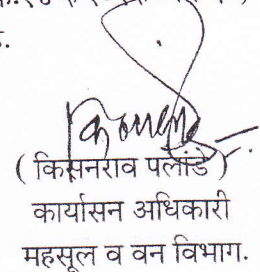 ( किसनराव पलांडे )
कार्यासन अधिकारी
महसूल व वन विभाग.